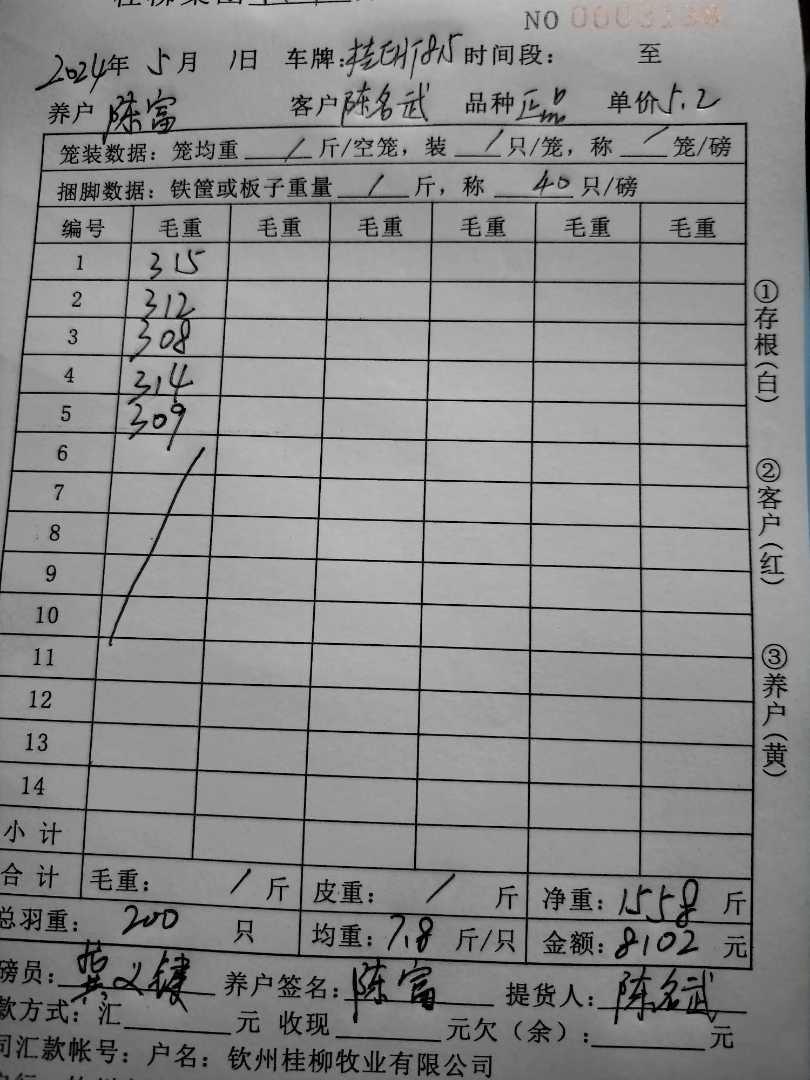 NO 0003138
2024年 5月 1日 车牌: 时间段: 至
养户 陈富 客户 陈名武 品种 正品 单价 5.2
笼装数据: 笼均重 / 斤/空笼, 装 / 只/笼, 称 / 笼/磅
捆脚数据: 铁筐或板子重量 / 斤, 称 40 只/磅
编号 毛重 毛重 毛重 毛重 毛重 毛重
1 315
2 312
3 308
4 314
5 309
6
7
8
9
10
11
12
13
14
小计
合计 毛重: / 斤 皮重: / 斤 净重: 1558 斤
总羽重: 200 只 均重: 7.8 斤/只 金额: 8102 元
磅员: 义键 养户签名: 陈富 提货人: 陈名武
款方式: 汇 元 收现 元欠(余): 元
司汇款帐号: 户名: 钦州桂柳牧业有限公司
①存根(白)
②客户(红)
③养户(黄)